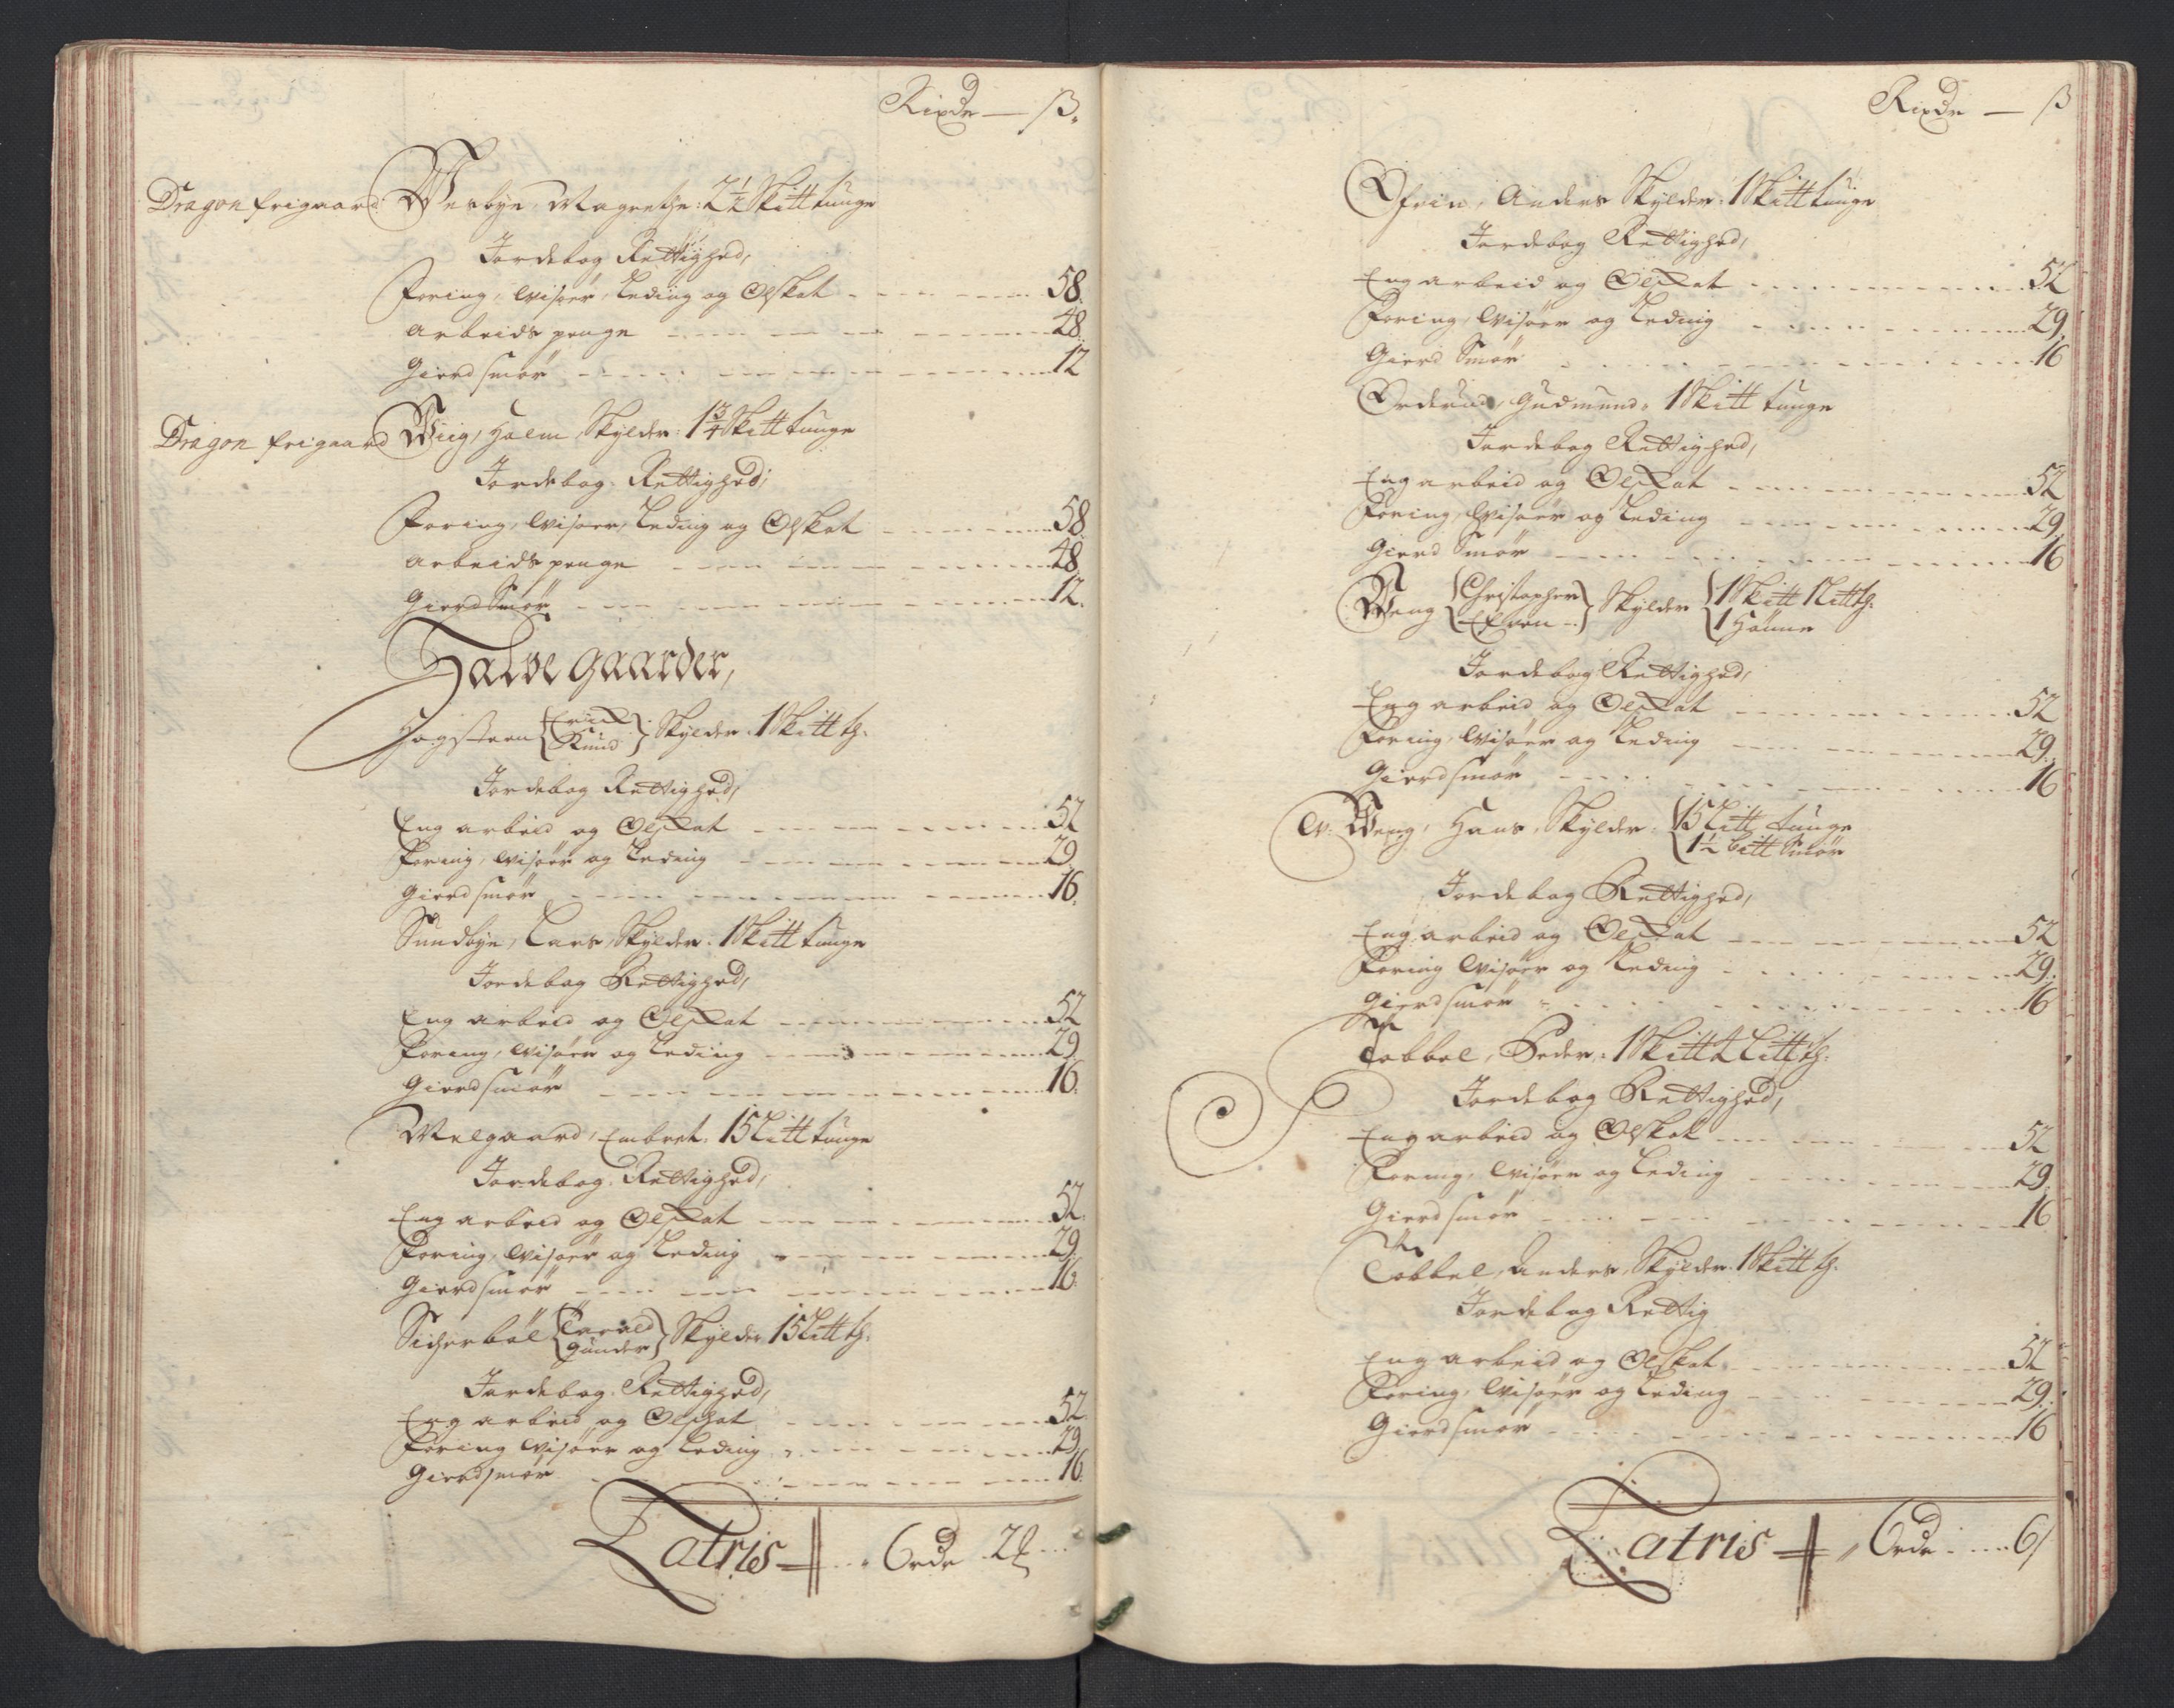 Rixdr — ß.
Dragon frigaard Werbye, Magrethe: 2½ Skitt tunge
Jordebog Rettighed,
Foring, Wisøer, Leding og Olskat 58.
Arbeids penge 48.
Gierd smør 12
Dragon frigaard Wiig, Halm Skylder: 1¾ Skitt tunge
Jordebog Rettighed,
Foring, Wisøer, Leding og Olskat 58.
Arbeids penge 48.
Gierd Smør 12.
Halve gaarder,
Hogsteen {Erich Knud} Skylder. 1 Skitt tg.
Jordebog Rettighed,
Eng arbeid og Olskat 52
Foring, Wisøer og Leding 29.
Gierd smør 16.
Sundbye, Lars, Skylder. 1 Skitt tunge
Jordebog Rettighed,
Eng arbeid og Olskat 52
Foring, Wisøer og Leding 29.
Gierd smør 16.
Melgaard, Embret. 15 Litt tunge
Jordebog Rettighed,
Eng arbeid og Olskat 52.
Foring, Wisøer og Leding 29.
Gierd smør 16.
{ Gunder} Skylder 15 Litt tg.
Jordebog Rettighed,
Eng arbeid og Olskat 52.
Foring Wisøer og Leding 29.
Gierd smør 16.
Latris 6 rdr 28
Rixdr — ß
Anders Skylder: 1 Skitt tunge
Jordebog Rettighed,
Eng arbeid og Olskat 52
Foring, Wisøer og Leding 29.
Gierd Smør 16
Orderud, Gudmund. 1 Skitt tunge
Jordebog Rettighed,
Eng arbeid og Olskat 52
Foring, Wisøer og Leding 29.
Gierd Smør 16
Weng {Christopher Even} Skylder {1 Skitt 1 Litt tg. 1 Hunne
Jordebog Rettighed,
Eng arbeid og Olskat 52
Foring, Wisøer og Leding 29.
Gierd smør 16
W: Weng, Hans, Skylder: {15 Litt tunge 1½ bitt Smør
Jordebog Rettighed,
Eng arbeid og Olskat 52
Foring Wisøer og Leding 29.
Gierd smør 16
Tobbel, Peder,: 1 Skitt 2 Litt tg:
Jordebog Rettighed,
Eng arbeid og Olskat 52
Foring, Wisøer og Leding 29.
Gierd smør 16
Tobbel, Anders, Skylder. 1 Skitt tg.
Jordebog Rettig
Eng arbeid og Olskat 52
Foring, Wisøer og Leding 29.
Gierd smør 16
Latris 6 rdr 6